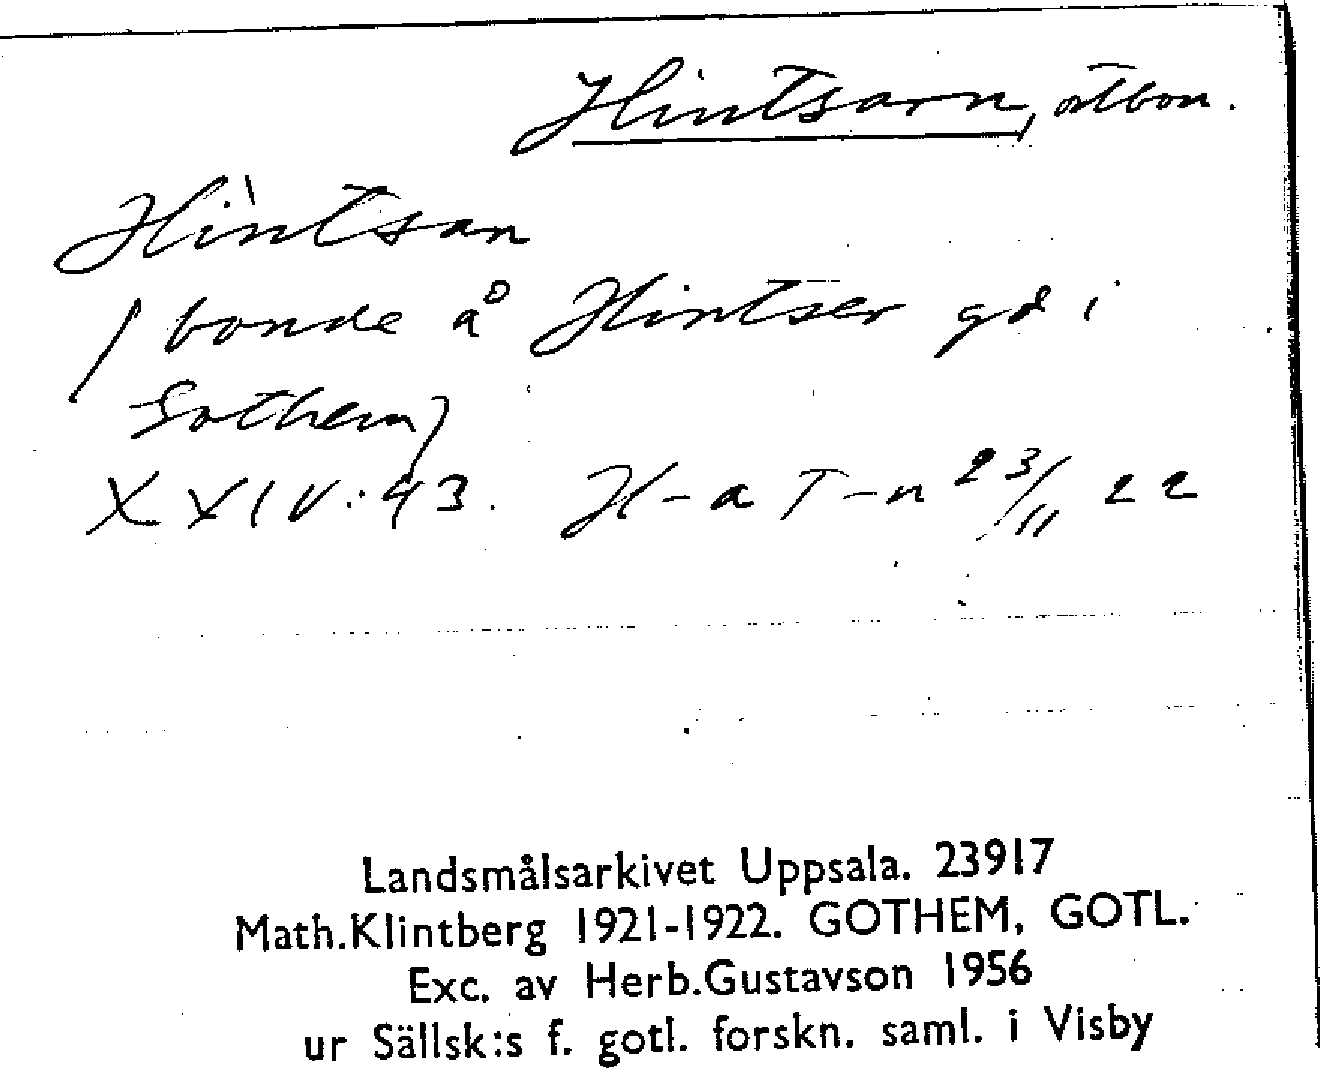 Hintsarn, ortbon.
Hìntsan
(bonde å Hintser gd i
Gothem)
XXIV:43. H-a T-n 23/11 22
Landsmålsarkivet Uppsala. 23917
Math.Klintberg 1921-1922. GOTHEM, GOTL.
Exc. av Herb.Gustavson 1956
ur Sällsk:s f. gotl. forskn. saml. i Visby